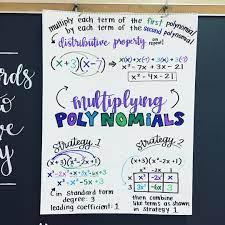 multiply each term of the first polynomial
by each term of the second polynomial
distributive property
(x+3)(x-7)
x² - 7x + 3x - 21
x² - 4x - 21
multiplying
POLYNOMIALS
Strategy 1
(x+3)(x²-2x+1)
x³-2x²+x+3x²-6x+3
x³+x²-5x+3
in standard form
degree: 3
leading coefficient: 1
Strategy 2
(x+3)(x²-2x+1)
x² -2x 1
x x³ -2x² x
3 3x² -6x 3
then combine
like terms as shown
in strategy 1.
rds
to
ve
y